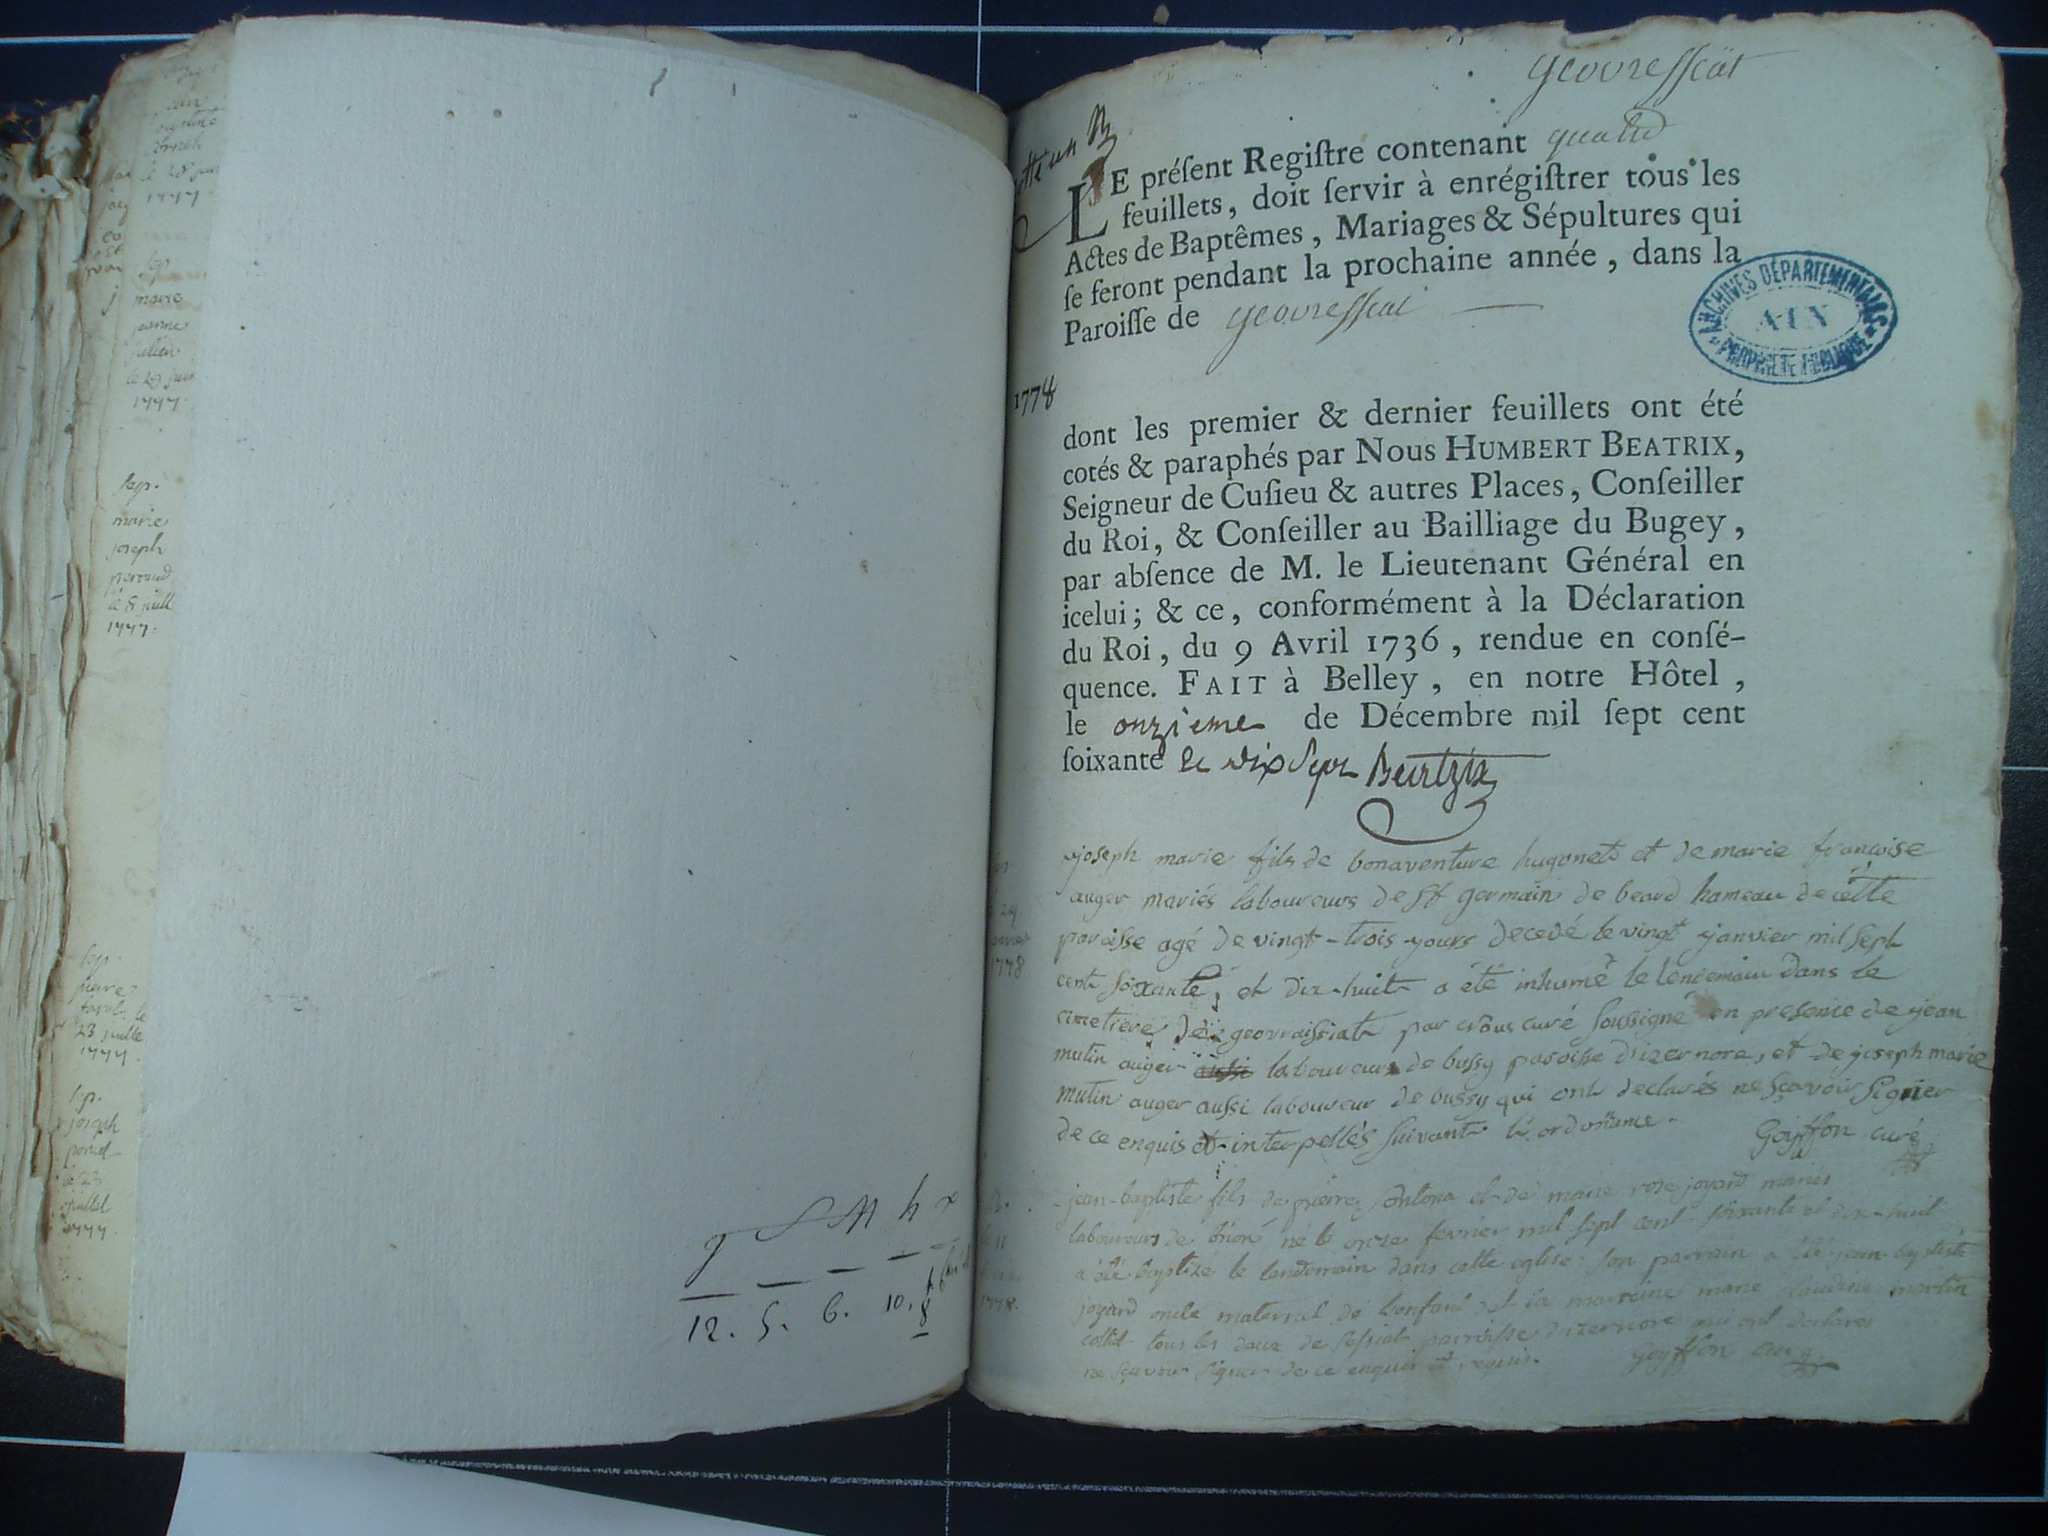 sep.
marie
joseph
le 8 juill
1777.
sep.
23 juille
1777.
sep.
joseph
le 23
juillet
1777.
12. 5. 6. 10. 8
geovressiat
cotté un
LE préſent Regiſtre contenant quatre
feuillets, doit ſervir à enrégiſtrer tous les
Actes de Baptêmes, Mariages & Sépultures qui
ſe feront pendant la prochaine année, dans la
Paroiſſe de geovressiat
1778
dont les premier & dernier feuillets ont été
cotés & paraphés par Nous HUMBERT BEATRIX,
Seigneur de Cuſieu & autres Places, Conſeiller
du Roi, & Conſeiller au Bailliage du Bugey,
par abſence de M. le Lieutenant Général en
icelui; & ce, conformément à la Déclaration
du Roi, du 9 Avril 1736, rendue en conſé-
quence. FAIT à Belley, en notre Hôtel,
le onzieme de Décembre mil ſept cent
ſoixante et dix Sept Beatrix
ARCHIVES DÉPARTEMENTALES
AIN
PROPRIÉTÉ PUBLIQUE
joseph marie fils de bonaventure hugonet et de marie francoise
auger mariés laboureurs de St germain de beard hameau de cette
paroisse agé de vingt-trois jours decedé le vingt janvier mil sept
cent soixante, et dix-huit a été inhumé le lendemain dans le
cimetiere de geovraissiat par nous curé soussigné en presence de jean
mutin auger aussi laboureur de bussy paroisse d'izernore, et de joseph marie
mutin auger aussi laboureur de bussy qui ont declarés ne sçavoir signer
de ce enquis et interpellés suivant l'ordonnance. Goyffon curé
1778
jean-baptiste fils de pierre antona et de marie rose joyard mariés
laboureurs de brion né le onze fevrier mil sept cent soixante et dix-huit
a été baptizé le landemain dans cette eglise. son parrain a été jean-baptiste
joyard oncle maternel de l'enfant et la marraine marie claudine martin
collet tous les deux de sessiat parroisse d'izernore qui ont declarés
ne sçavoir signer de ce enquis et requis. Goyffon curé
1778.